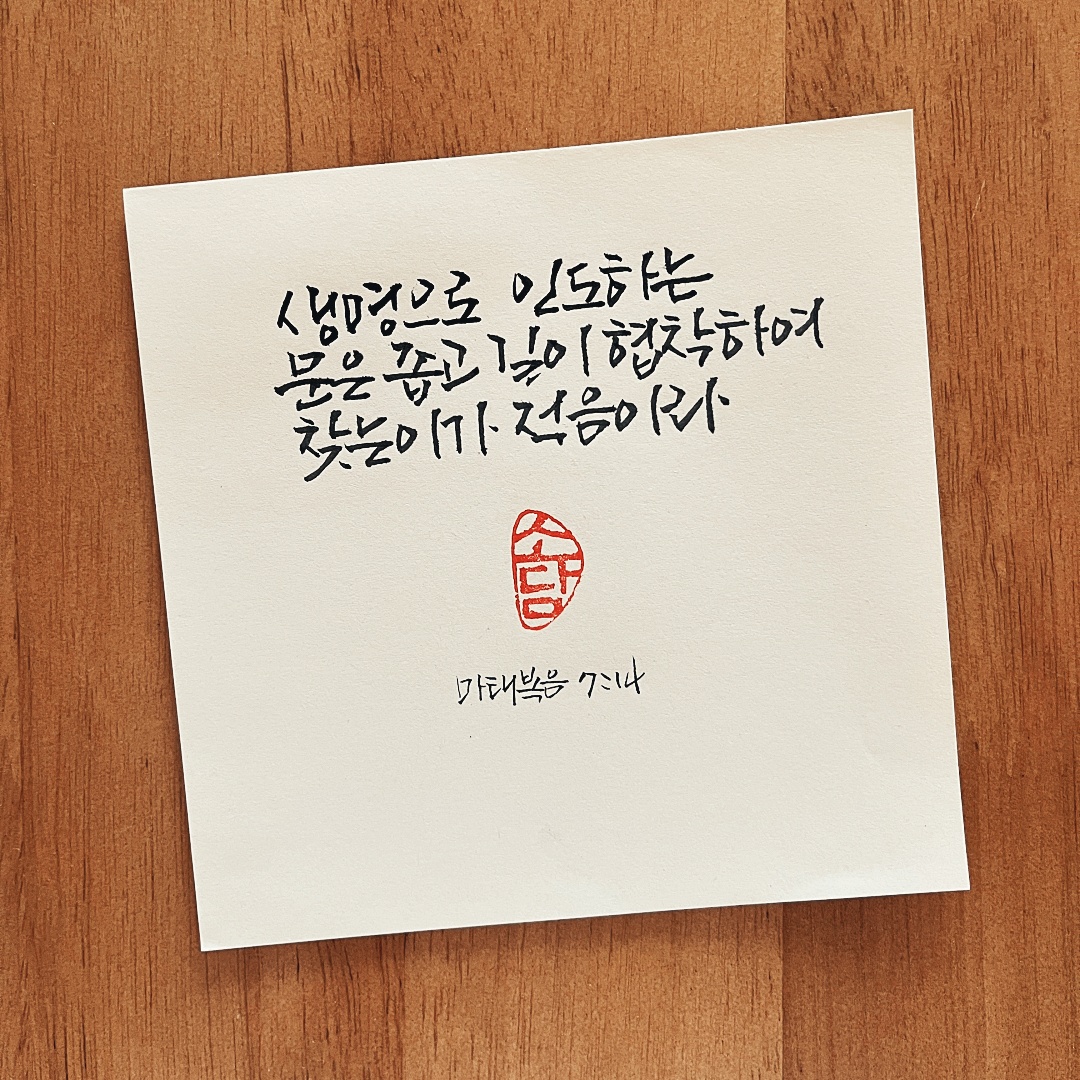 생명으로 인도하는
문은 좁고 길이 협착하여
찾는이가 적음이라
소담
마태복음 7:14